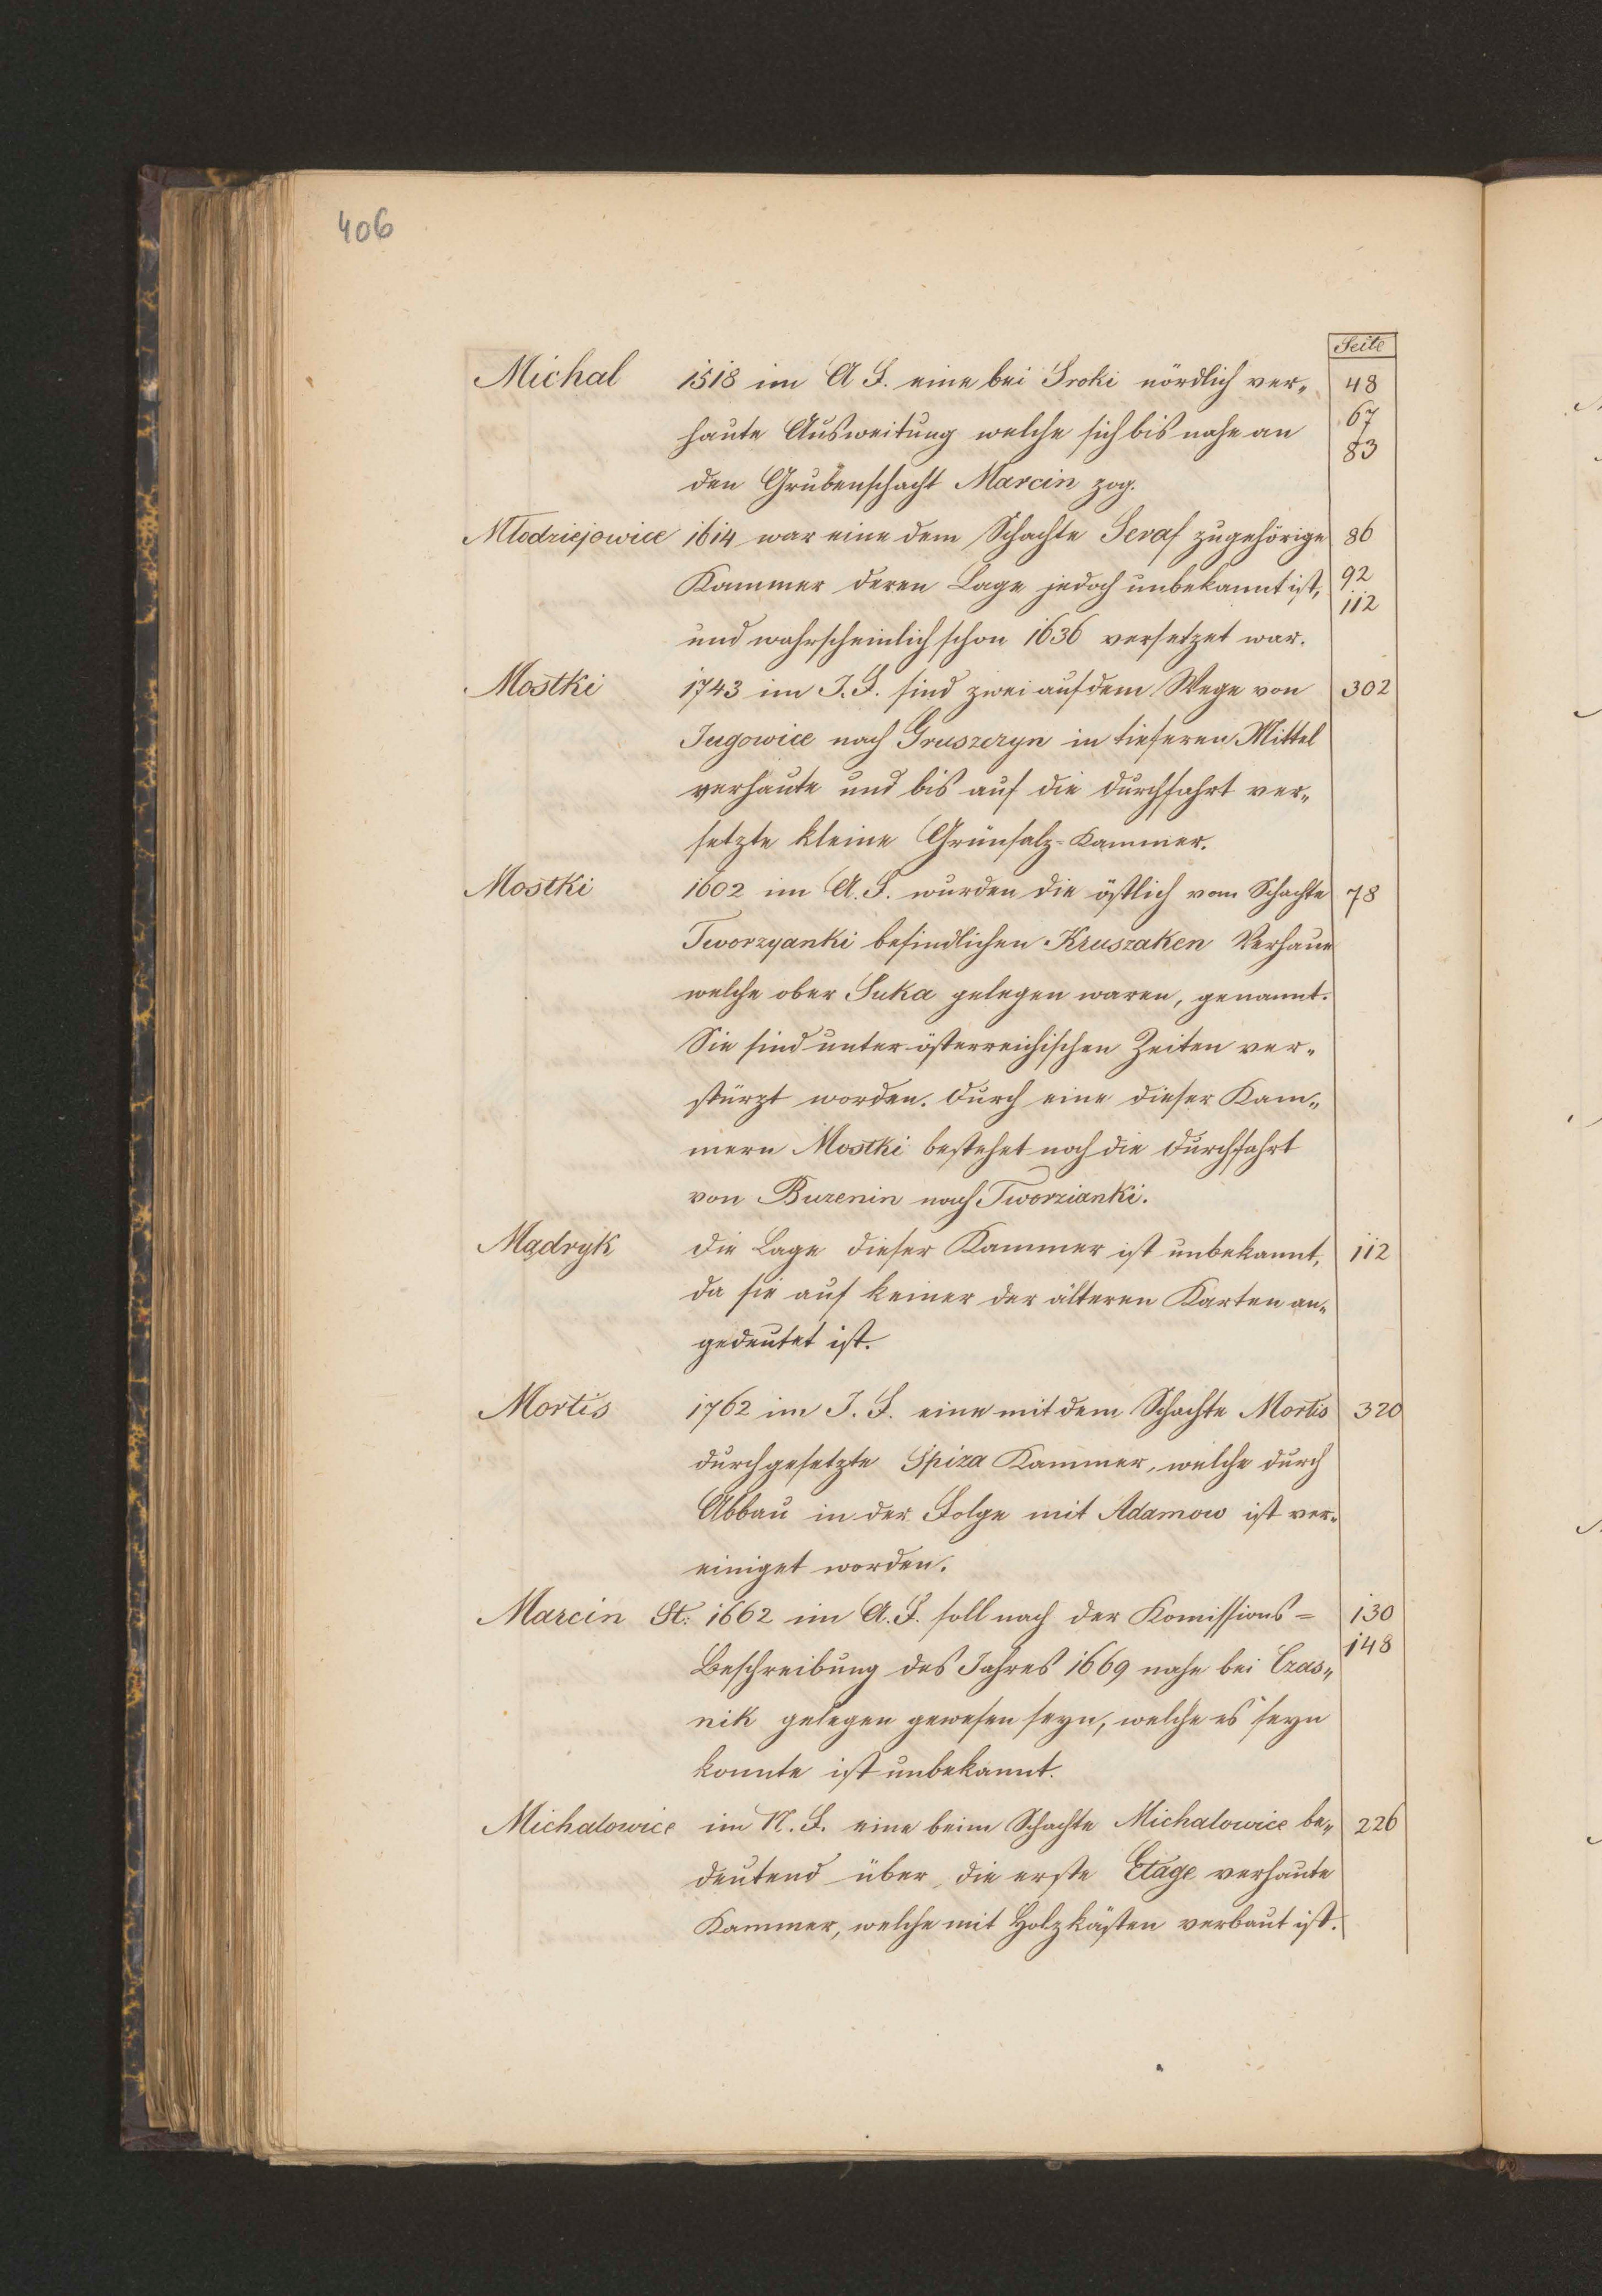 406
Seite
Michal 1518 im A F. eine bei Sroki nördlich ver„ 48
haute Ausweitung welche sich bis nahe an 67
83
den Grubenschacht Marcin zog.
Młodziejowice 1614 war eine dem Schachte Seraf zugehörige 86
Kammer deren Lage jedoch unbekannt ist, 92
112
und wahrscheinlich schon 1636 versetzet war.
Mostki 1743 im J. F. sind zwei auf dem Wege von 302
Jugowice nach Gruszczyn in tieferen Mittel
verhaute und bis auf die Durchfahrt ver„
setzte kleine Grünsalz-Kammer.
Mostki 1602 im A. F. wurden die östlich vom Schachte 78
Tworzyanki befindlichen Kruszaken Verhaue
welche ober Suka gelegen waren, genannt.
Sie sind unter österreichischen Zeiten ver„
stürzt worden. Durch eine dieser Kam„
mern Mostki bestehet noch die Durchfahrt
von Buzenin nach Tworzianki.
Mądryk Die Lage dieser Kammer ist unbekannt, 112
da sie auf keiner der älteren Karten an„
gedeutet ist.
Mortis 1762 im J. F. eine mit dem Schachte Mortis 320
durchgesetzte Spiza Kammer, welche durch
Abbau in der Folge mit Adamow ist ver„
einiget worden.
Marcin St: 1662 im A. F. soll nach der Komissions= 130
Beschreibung des Jahres 1669 nahe bei Czas„ 148
nik gelegen gewesen seyn, welche es seyn
konnte ist unbekannt.
Michałowice im N. F. eine beim Schachte Michałowice be„ 226
deutend über die erste Etage verhaute
Kammer, welche mit Holzkästen verbaut ist.